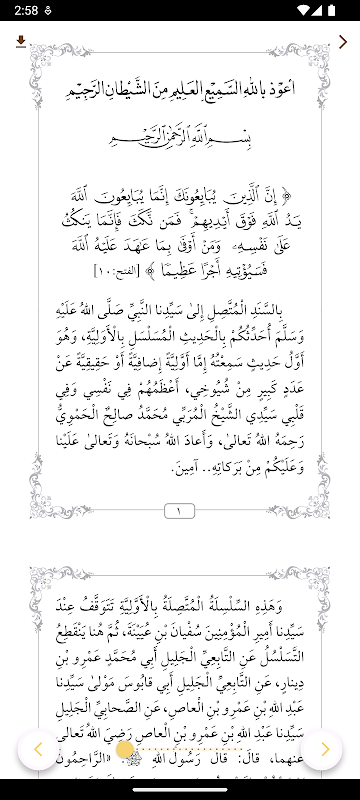 2:58
أعوذ بالله السميع العليم من الشيطان الرجيم
بسم الله الرحمن الرحيم
﴿ إِنَّ الَّذِينَ يُبَايِعُونَكَ إِنَّمَا يُبَايِعُونَ اللَّهَ
يَدُ اللَّهِ فَوْقَ أَيْدِيهِمْ ۚ فَمَن نَّكَثَ فَإِنَّمَا يَنكُثُ
عَلَىٰ نَفْسِهِ ۖ وَمَنْ أَوْفَىٰ بِمَا عَاهَدَ عَلَيْهُ اللَّهَ
فَسَيُؤْتِيهِ أَجْرًا عَظِيمًا ﴾ [الفتح: ١٠]
بِالسَّنَدِ الْمُتَّصِلِ إِلىٰ سَيِّدِنا النَّبِيِّ صَلَّى اللهُ عَلَيْهِ
وَسَلَّمَ أُحَدِّثُكُمْ بِالْحَدِيثِ الْمُسَلْسَلِ بِالْأَوَّلِيَّةِ، وَهُوَ
أَوَّلُ حَدِيثٍ سَمِعْتُهُ إِمَّا أَوَّلِيَّةً إِضافِيَّةً أَوْ حَقِيقِيَّةً عَنْ
عَدَدٍ كَبِيرٍ مِنْ شُيُوخِي، أَعْظَمُهُمْ فِي نَفْسِي وَفِي
قَلْبِي سَيِّدِي الشَّيْخُ الْمُرَبِّي مُحَمَّدُ صالِحٌ الْحَمْوِيُّ
رَحِمَهُ اللهُ تَعالىٰ، وَأَعادَ اللهُ سُبْحَانَهُ وَتَعالىٰ عَلَيْنا
وَعَلَيْكُمْ مِنْ بَرَكاتِهِ.. آمِينَ.
١
وَهَذِهِ السِّلْسِلَةُ الْمُتَّصِلَةُ بِالْأَوَّلِيَّةِ تَتَوَقَّفُ عِنْدَ
سَيِّدِنا أَمِيرِ الْمُؤْمِنِينَ سُفْيانَ بْنِ عُيَيْنَةَ، ثُمَّ هُنا يَنْقَطِعُ
التَّسَلْسُلُ عَنِ التَّابِعِيِّ الْجَلِيلِ أَبِي مُحَمَّدٍ عَمْرِو بْنِ
دِينارٍ، عَنِ التَّابِعِيِّ الْجَلِيلِ أَبِي قابُوسَ مَوْلىٰ سَيِّدِنا
عَبْدِ اللهِ بْنِ عَمْرِو بْنِ الْعاصِ، عَنِ الصَّحابِيِّ الْجَلِيلِ
سَيِّدِنا عَبْدِ اللهِ بْنِ عَمْرِو بْنِ الْعاصِ رَضِيَ اللهُ تَعالى
عنهما، قالَ: قالَ رَسُولُ اللهِ ﷺ: «الرَّاحِمُونَ